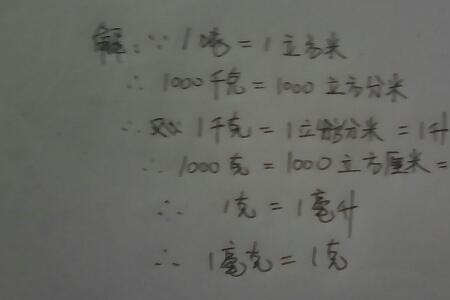 解:∵1吨=1立方米
∴1000千克=1000立方分米
∴1千克=1立方分米=1升
∴1000克=1000立方厘米=
∴1克=1毫升
∴1毫克=1克